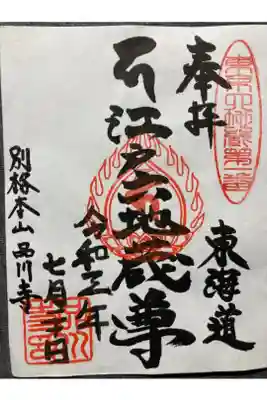 奉拝
東海道
江戸六地蔵尊
令和元年
七月三十日
別格本山 品川寺